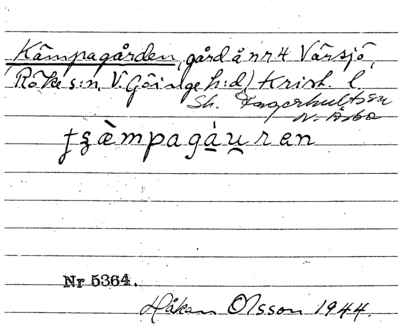 Kämpagården, gård å nr 4 Värsjö,
Röke s:n, V. Göinge h:d, Krist. l.
Sk. Fagerhultssn
N. Åsbo
ƫʂæ̀mpagáu̯ren
Nr 5364.
Håkan Olsson 1944.